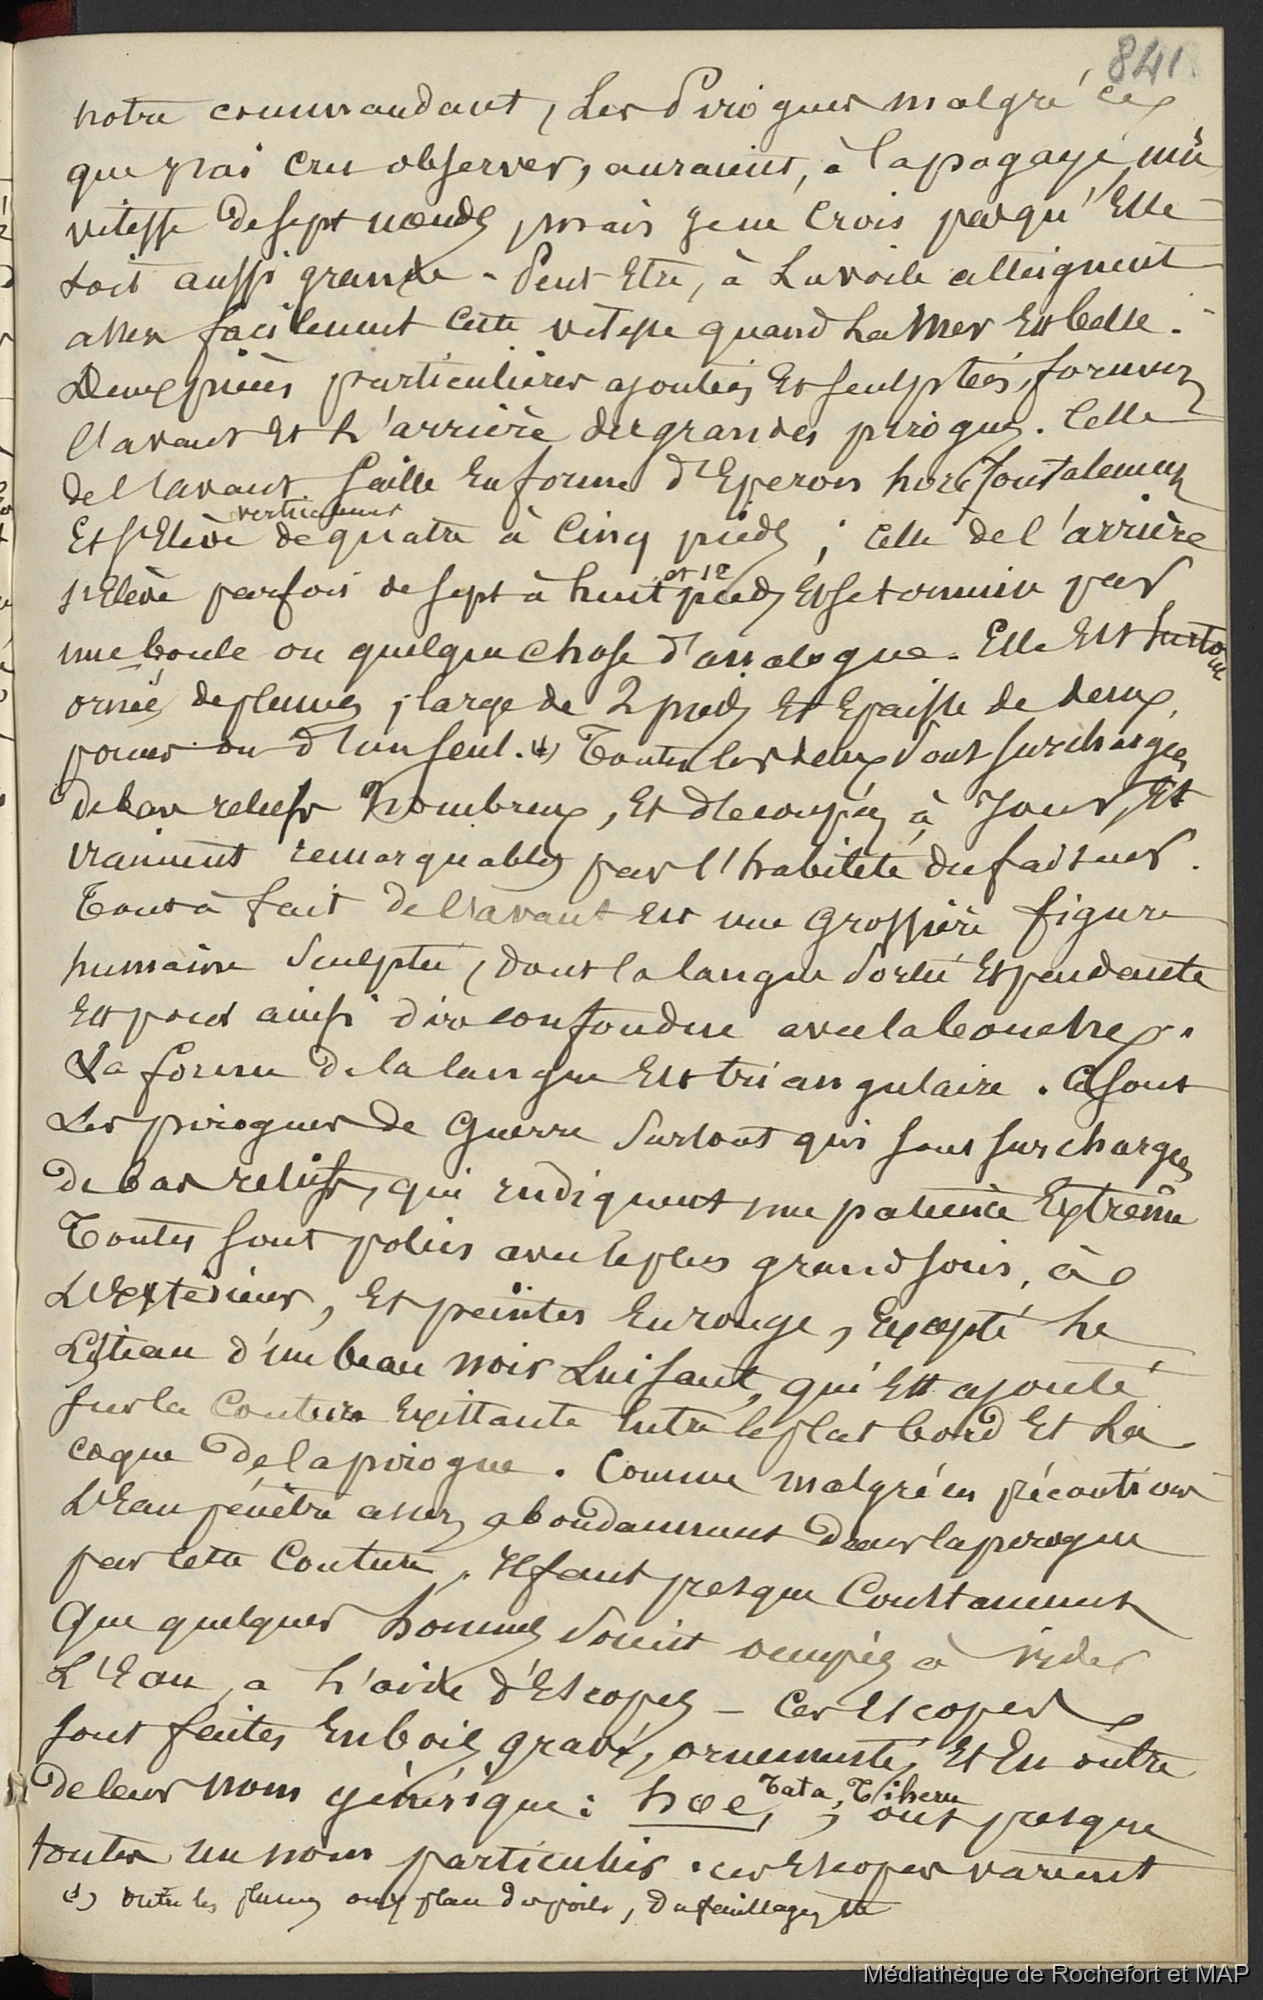 841.
notre commandant, Les Pirogues malgré ce
que j'ai cru observer, auraient, à la pagaye, une
vitesse de sept nœuds, mais je ne crois pas qu'Elle
soit aussi grande - Peut-Etre, à La voile atteignent
assez facilement cette vitesse quand La Mer Est belle. -
Deux pièces particulières ajoutées Et sculptées, forment
l'avant Et L'arrière des grandes pirogues. Celle
de l'avant Saille En forme d'Eperon horizontalement
verticalement
Et s'Elève de quatre à Cinq pieds ; celle de l'arrière
et 12
s'Elève parfois de sept à huit pieds Et se termine par
une boule ou quelque chose d'analogue. Elle Est surtout
ornée de plumes ; large de 2 pieds Et Epaisse de deux
pouces ou d'un seul. (1) Toutes les deux sont surchargées
de bas reliefs Nombreux, Et découpés à Jour, Et
vraiment remarquables par l'habileté du faiseur.
Tout à fait de l'avant Est une Grossière figure
humaine Sculptée, dont la langue sortie Et pendante
Est pour ainsi dire confondue avec la bouche.
La forme de la langue Est triangulaire. Ce sont
Les pirogues de Guerre Surtout qui sont surchargées
de bas reliefs, qui indiquent une patience Extrême
Toutes sont polies avec le plus grand soin, à
L'Extérieur, Et peintes En rouge, Excepté Le
Liteau d'un beau noir Luisant, qui Est ajouté
sur la Couture Existante Entre le plat bord Et La
coque de la pirogue. Comme malgré ces précautions
L'Eau pénètre assez abondamment dans la pirogue
par cette Couture, Il faut presque Constamment
Que quelques hommes soient occupés à vider
L'Eau, a L'aide d'Escopes - Ces Escopes
sont faites En bois gravé, ornementé, Et En outre
Tata, Tiheru
de leur nom générique : hoe, , ont presque
toutes un nom particulier. ces Escopes varient
(1) outre les plumes on y place des poils, du feuillage, Etc
Médiathèque de Rochefort et MAP